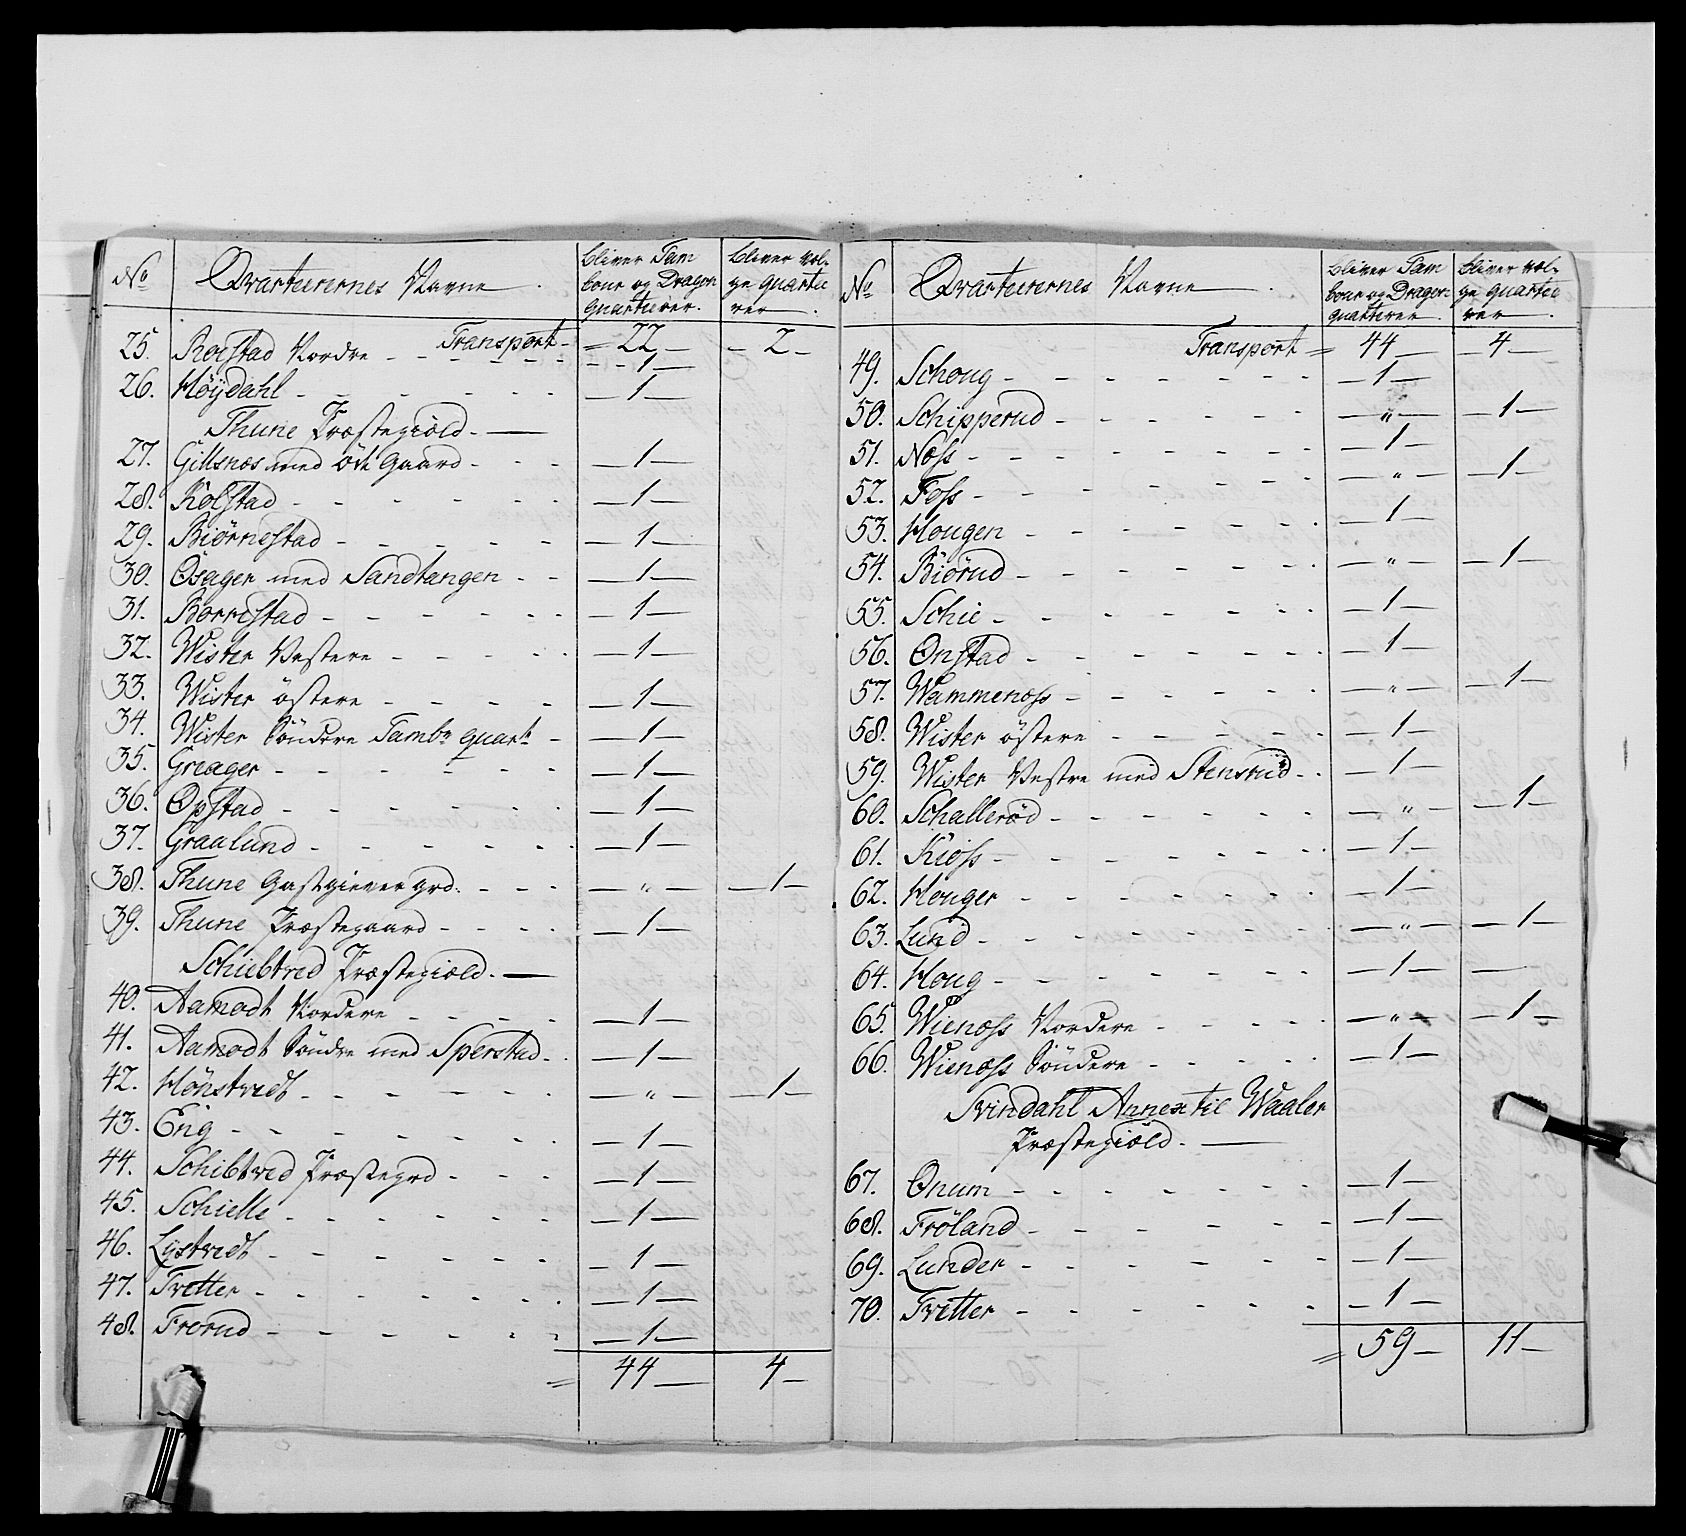 No Qvarteerernes Navne bliver Tam
bour og Dragon
Quarteerer. bliver vel-
ge Quartee
rer.
Transport = 22 — 2 —
25. Rolstad Nordre — 1 —
26. Höÿdahl — 1 —
Thune Præstegiæld. —
27. Gillsnæs med öde Gaard — 1 —
28. Kolstad — 1 —
29. Biörnestad — 1 —
30. Øsager med Sandtangen — 1 —
31. Borrestad — 1 —
32. Wister Vestere — 1 —
33. Wister östere — 1 —
34. Wister Söndere Tambr quartr — 1 —
35. Greager — 1 —
36. Opstad — 1 —
37. Graalund — 1 —
38. Thune Gastgiever grd. — " — — 1 —
39. Thune Præstegaard — 1 —
Schiebtved Præstegiæld. —
40. Aamodt Nordere — 1 —
41. Aamodt Söndre med Sperstad — 1 —
42. Hönstvedt — " — — 1 —
43. Eng — 1 —
44. Schibtved Præstegrd — 1 —
45. Schielle — 1 —
46. Lÿstvedt — 1 —
47. Tvetter — 1 —
48. Frorud — 1 —
= 44 — 4 —
No Qvarteerernes Navne bliver Tam
bour og Dragon:
quarterer. bliver vel-
ge quartee
rer.
Transport = 44 — 4 —
49. Schoug — 1 —
50. Schipperud — " — — 1 —
51. Næss — 1 —
52. Foss — " — — 1 —
53. Hougen — 1 —
54. Biörud — " — — 1 —
55. Schie — 1 —
56. Onstad — 1 —
57. Wammenæss — " — — 1 —
58. Wister östere — 1 —
59. Wister Vestre med Stensrud — 1 —
60. Schalleröd — " — — 1 —
61. Kiöss — 1 —
62. Houger — 1 —
63. Lund — " — — 1 —
64. Houg — 1 — —
65. Wienæss Nordere — " — — 1 —
66. Wienæss Söndere — 1 —
Svindahl Annex til Waaler
Præstegiæld. —
67. Onum — 1 —
68. Fröland — 1 —
69. Lunder — 1 —
70. Tvetter — 1 —
= 59 — 11 —